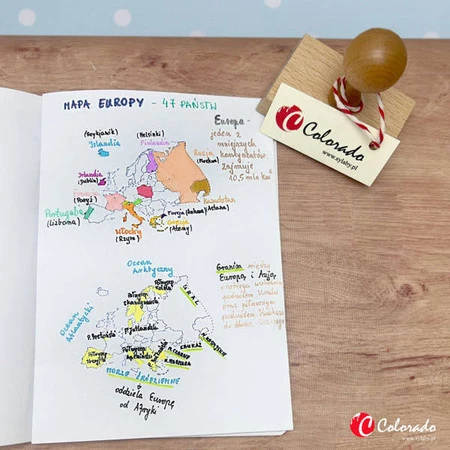 MAPA EUROPY - 47 PAŃSTW
(Reykjavik)
Islandia
(Helsinki)
Finlandia
Europa -
jeden z
mniejszych
kontynentów.
Zajmuje
10,5 mln km²
Rosja
(Moskwa)
Irlandia
(Dublin)
Francja
(Paryż)
Kazachstan
Portugalia
(Lizbona)
Turcja (Ankara)
Grecja
(Ateny)
Włochy
(Rzym)
Ocean
Arktyczny
Granica między
Europą i Azją
Ocean
Atlantycki
URAL
Półwysep
Skandynawski
P. Jutlandzki
KAUKAZ
M. CZARNE
M. KASPIJSKIE
Półwysep
Iberyjski
Półwysep
Apeniński
MORZE ŚRÓDZIEMNE
oddziela Europę
od Afryki
Colorado
www.xylaby.pl
Colorado
www.xylaby.pl